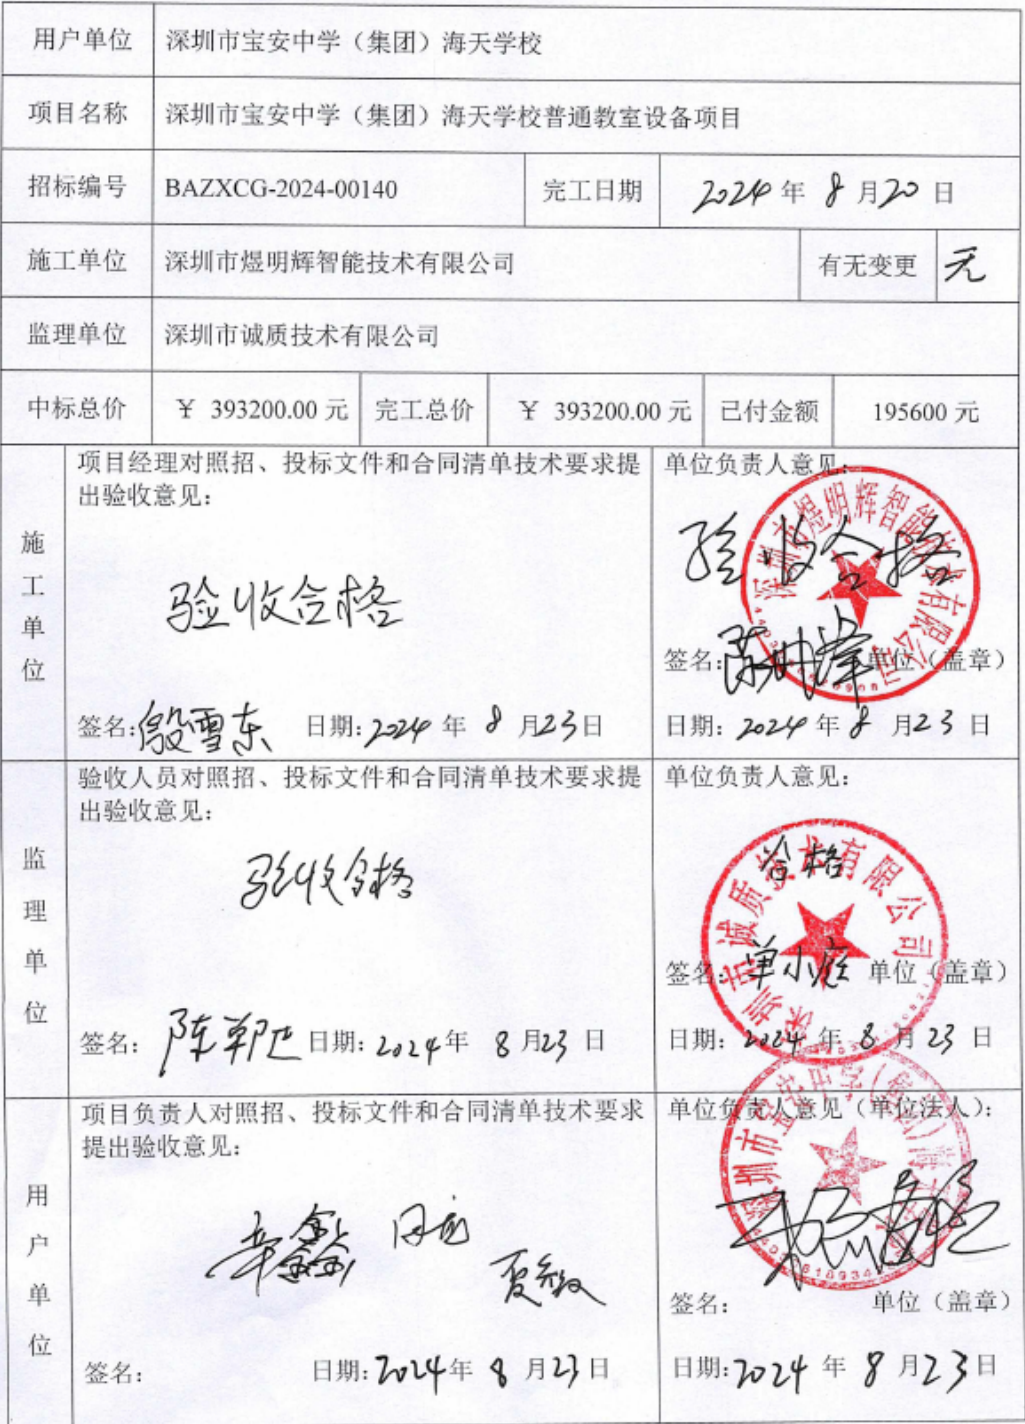 用户单位 深圳市宝安中学（集团）海天学校
项目名称 深圳市宝安中学（集团）海天学校普通教室设备项目
招标编号 BAZXCG-2024-00140 完工日期 2024年8月20日
施工单位 深圳市煜明辉智能技术有限公司 有无变更 无
监理单位 深圳市诚质技术有限公司
中标总价 ￥ 393200.00 元 完工总价 ￥ 393200.00 元 已付金额 195600 元
施工单位
项目经理对照招、投标文件和合同清单技术要求提
出验收意见：
验收合格
签名：殷雪东 日期：2024年8月23日
单位负责人意见：
验收合格
深圳市煜明辉智能技术有限公司
签名： 单位（盖章）
日期：2024年8月23日
监理单位
验收人员对照招、投标文件和合同清单技术要求提
出验收意见：
验收合格
签名：陈 日期：2024年8月23日
单位负责人意见：
合格
深圳市诚质技术有限公司
签名：单小 单位（盖章）
日期：2024年8月23日
用户单位
项目负责人对照招、投标文件和合同清单技术要求
提出验收意见：
辛鑫 夏敏
签名： 日期：2024年8月23日
单位负责人意见（单位法人）：
深圳市宝安中学（集团）海
签名： 单位（盖章）
日期：2024年8月23日